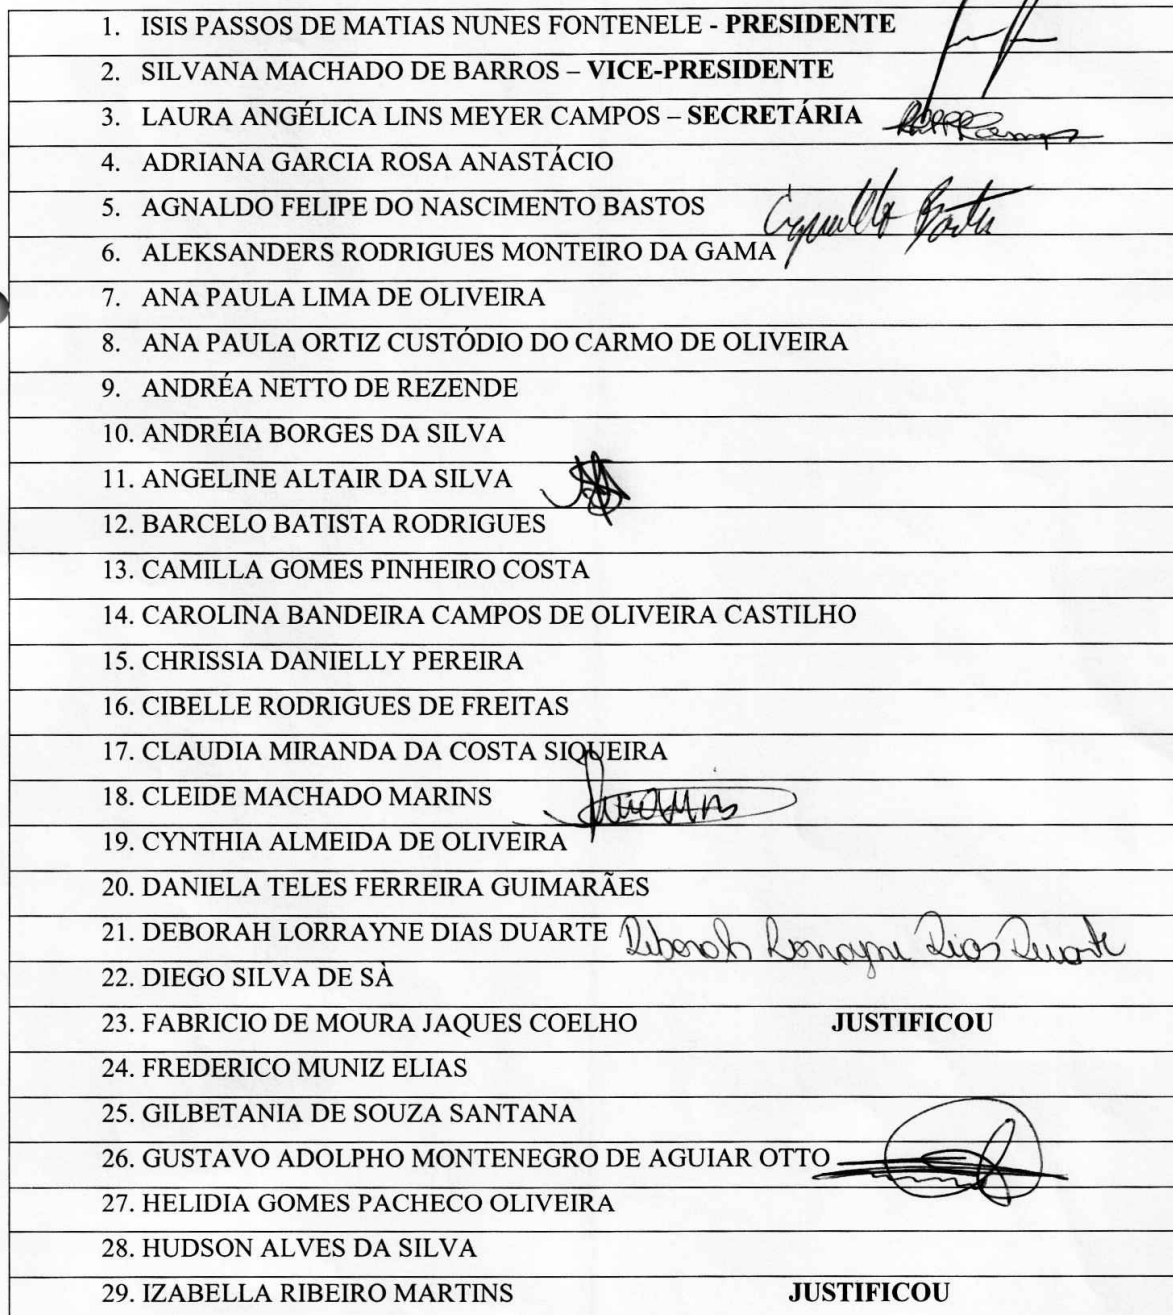 1. ISIS PASSOS DE MATIAS NUNES FONTENELE - PRESIDENTE
2. SILVANA MACHADO DE BARROS – VICE-PRESIDENTE
3. LAURA ANGÉLICA LINS MEYER CAMPOS – SECRETÁRIA
4. ADRIANA GARCIA ROSA ANASTÁCIO
5. AGNALDO FELIPE DO NASCIMENTO BASTOS
6. ALEKSANDERS RODRIGUES MONTEIRO DA GAMA
7. ANA PAULA LIMA DE OLIVEIRA
8. ANA PAULA ORTIZ CUSTÓDIO DO CARMO DE OLIVEIRA
9. ANDRÉA NETTO DE REZENDE
10. ANDRÉIA BORGES DA SILVA
11. ANGELINE ALTAIR DA SILVA
12. BARCELO BATISTA RODRIGUES
13. CAMILLA GOMES PINHEIRO COSTA
14. CAROLINA BANDEIRA CAMPOS DE OLIVEIRA CASTILHO
15. CHRISSIA DANIELLY PEREIRA
16. CIBELLE RODRIGUES DE FREITAS
17. CLAUDIA MIRANDA DA COSTA SIQUEIRA
18. CLEIDE MACHADO MARINS
19. CYNTHIA ALMEIDA DE OLIVEIRA
20. DANIELA TELES FERREIRA GUIMARÃES
21. DEBORAH LORRAYNE DIAS DUARTE Deborah Lorrayne Dias Duarte
22. DIEGO SILVA DE SÀ
23. FABRICIO DE MOURA JAQUES COELHO JUSTIFICOU
24. FREDERICO MUNIZ ELIAS
25. GILBETANIA DE SOUZA SANTANA
26. GUSTAVO ADOLPHO MONTENEGRO DE AGUIAR OTTO
27. HELIDIA GOMES PACHECO OLIVEIRA
28. HUDSON ALVES DA SILVA
29. IZABELLA RIBEIRO MARTINS JUSTIFICOU